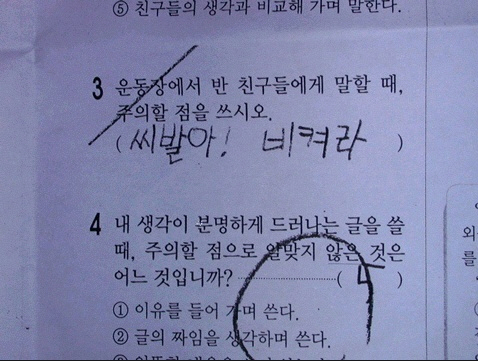 ⑤ 친구들의 생각과 비교해 가며 말한다.
3 운동장에서 반 친구들에게 말할 때,
주의할 점을 쓰시오.
( 씨발아! 비켜라 )
4 내 생각이 분명하게 드러나는 글을 쓸
때, 주의할 점으로 알맞지 않은 것은
어느 것입니까? ( 4 )
① 이유를 들어 가며 쓴다.
② 글의 짜임을 생각하며 쓴다.
외
를